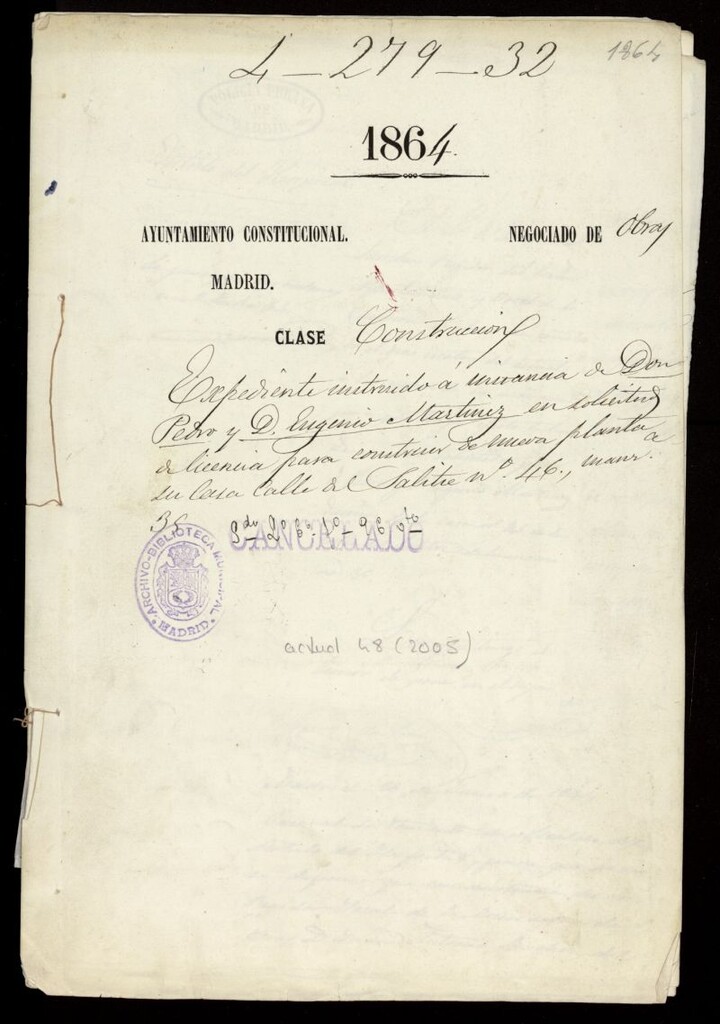 4-279-32
1864
1864.
AYUNTAMIENTO CONSTITUCIONAL.
NEGOCIADO DE Obras
MADRID.
CLASE Construccion
Expediente instruido á instancia de Don
Pedro y D. Eugenio Martinez en solicitud
de licencia para construir de nueva planta
su casa Calle del Salitre nº. 46., manz.ª
35
CANCELADO
ARCHIVO-BIBLIOTECA MUNICIPAL
MADRID
actual 48 (2005)